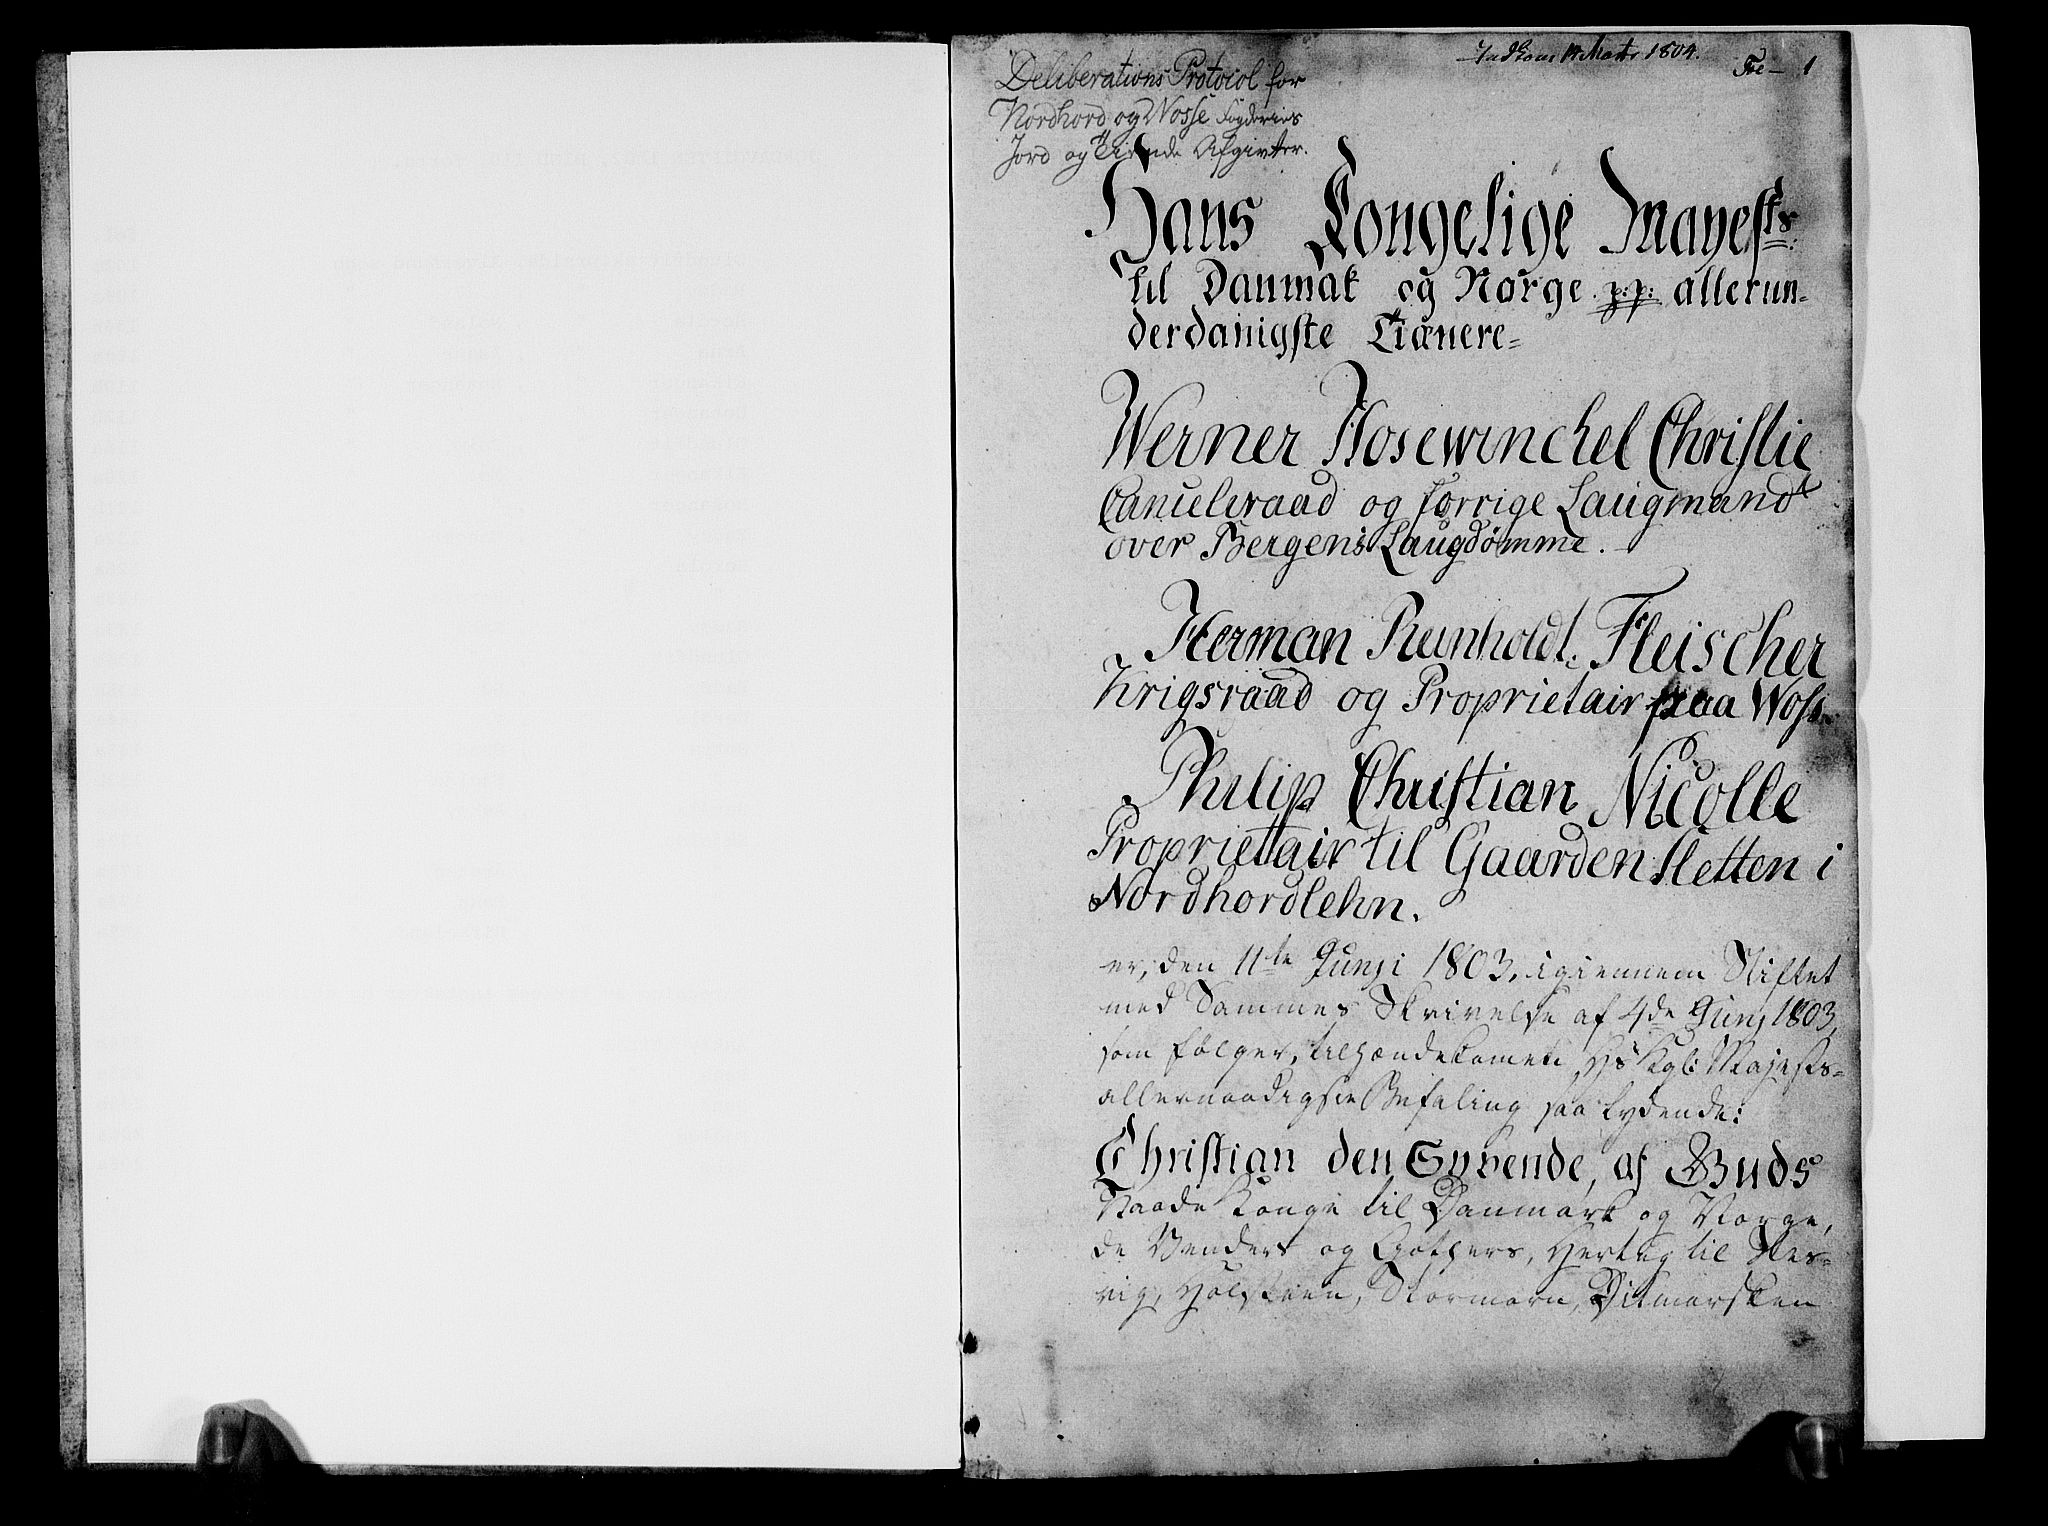 Deliberations Protocol for
Nordhord og Vosse Fogderies
Jord og Tiende Afgivter.
Indkom 14 Marts 1804.
Foe – 1
Hans Kongelige Mayests:
til Danmak og Norge p:p: allerun-
derdanigste Tiænere-
Werner Hosewinckel Christie
Cancelieraad og forrige Laugmand
over Bergens Laugdømme.
Herman Reinholdt Fleischer
Krigsraad og Proprietair paa Woss.
Philip Christian Nicolle
Propriettair til Gaarden Sletten i
Nordhordlehn.
er, den 11te Junji 1803, igiennem Stiftet
med Sammes Skrivelse af 4de Junj 1803,
som følger, tilhændekommen Hs Kgl: Majests-
allernaadigste Befaling saa lydende:
Christian den Syvende, af Guds
Naade Konge til Danmark og Norge,
de Venders og Gothers, Hertug til Sles-
vig, Holsteen, Stormarn, Ditmarsken